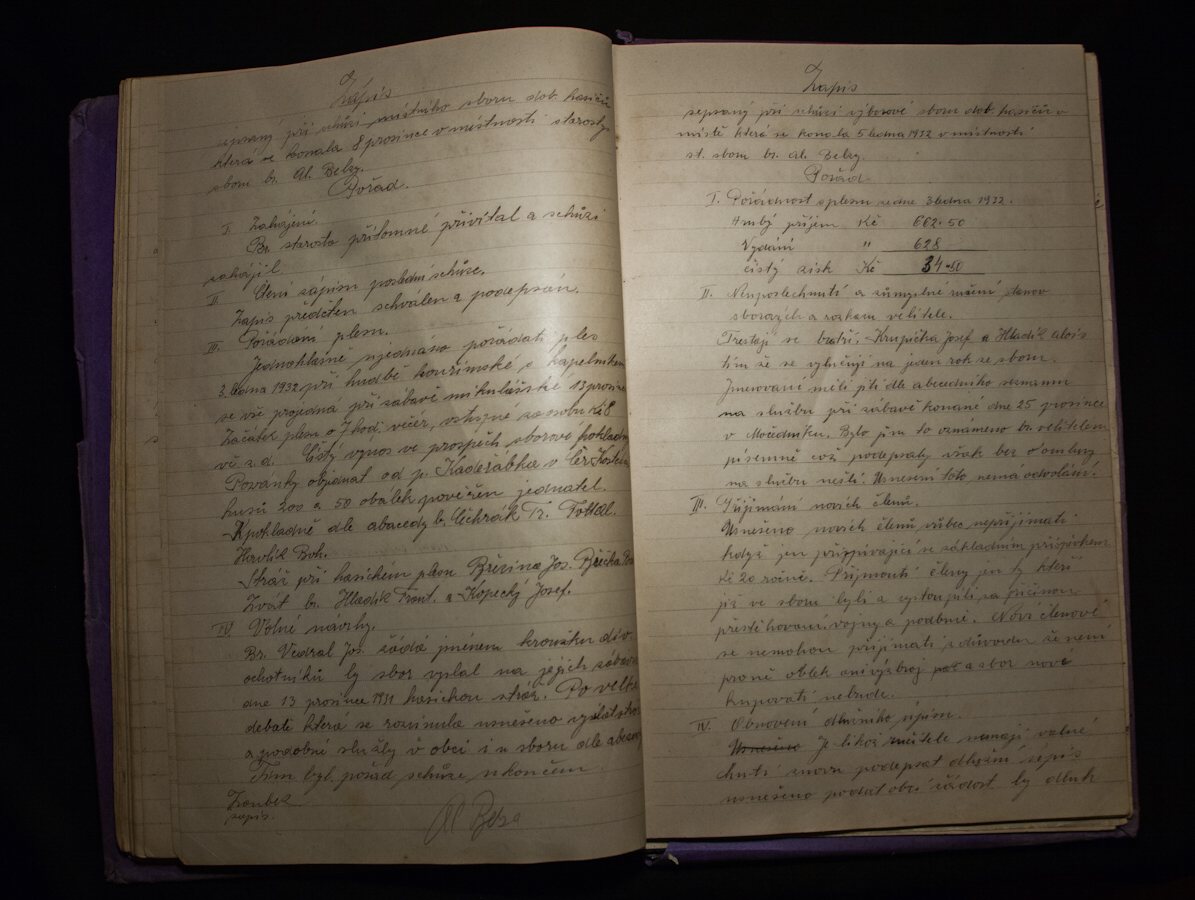 Zápis
sepsaný při schůzi místního sboru dob. hasičů
která se konala 8 prosince v místnosti starosty
sboru br. Al. Belzy.
Pořad.
I. Zahájení.
Br. starosta přítomné přivítal a schůzi
zahájil.
II. Čtení zápisu poslední schůze.
Zápis předčten schválen a podepsán.
III. Pořádání plesu.
Jednohlasně ujednáno pořádati ples
3. ledna 1932 při hudbě kouřimské s kapelníkem
se vše projedná při zábavě mikulášské 13 prosince
Začátek plesu o 7 hod. večer, vstupné za osobu Kč 8
vč. z. d. Čistý výnos ve prospěch sborové pokladny
Pozvánky objednat od p. Kadeřábka v Čer. Kostelci
kusů 200 a 50 obálek pověřen jednatel.
K pokladně dle abecedy br. Tr.
Havlík Boh.
Stráž při hasičském plesu Březina Jos.
Zvát br. Hladík Frant. a Kopecký Josef.
IV. Volné návrhy.
Br. Vedral Jos. žádá jménem kroužku div.
ochotníků by sbor vyslal na jejich zábavu
dne 13 prosince 1931 hasičkou stráž. Po velké
debatě která se rozvinula usnešeno vysílat stráž
a podobné služby v obci i u sboru dle abecedy
Tím byl pořad schůze ukončen.
Zoubek
zapis.
Al Belza
Zápis
sepsaný při schůzi výborové sboru dob. hasičů v
místě která se konala 5 ledna 1932 v místnosti
st. sboru br. Al. Belzy.
Pořad
I. Pořádnost s plesu ze dne 3 ledna 1932.
Hrubý příjem Kč 662·50
Vydání " 628
čistý zisk Kč 34·50
II. Neuposlechnutí a zúmyslné rušení stanov
sborových a rozkazu velitele.
Trestají se bratři. Krupička Josef a Hladík Alois
tím že se vylučují na jeden rok ze sboru.
Jmenovaní měli jíti dle abecedního seznamu
na službu při zábavě konané dne 25 prosince
v Močedníku. Bylo jim to oznameno br. velitelem
písemně což podepsaly však bez omluvy
na službu nešli. Usnesení toto nemá odvolání.
III. Přijímání nových členů.
Usnešeno nových členů vůbec nepřijímati
když jen přispívající se základním příspěvkem
Kč 20 ročně. Přijmouti členy jen ty kteří
již ve sboru byli a vystoupili za příčinou
přestěhovani, vojny a podobně. Noví členové
se nemohou přijímati z důvodu že není
pro ně oblek ani výzbroj a sbor nové
kupovati nebude.
IV. Obnovení dlužního úpisu.
Usnešeno Jelikož ručitelé nemají valné
chuti znovu podepsat dlužní úpis
usnešeno podat obci žádost by dluh